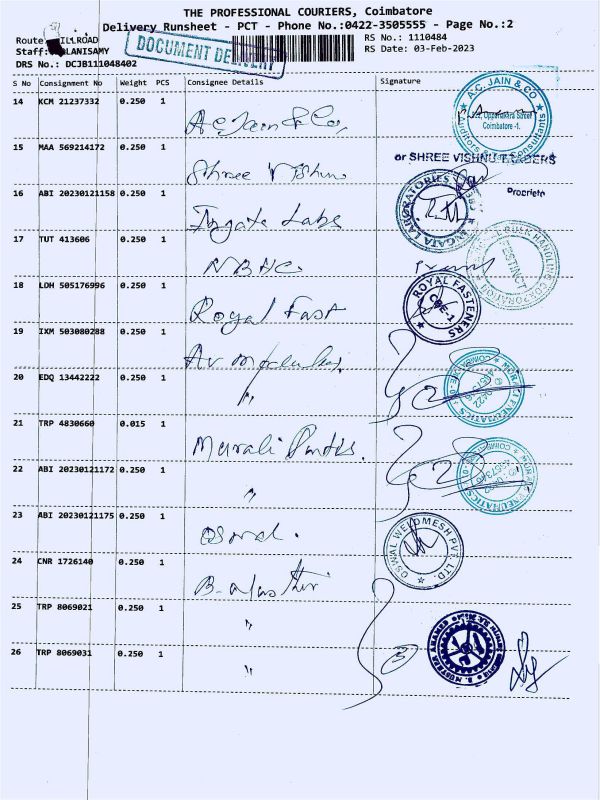 THE PROFESSIONAL COURIERS, Coimbatore
Delivery Runsheet - PCT - Phone No.:0422-3505555 - Page No.:2
DOCUMENT DELIVERY
Route
RS No.: 1110484
Staff: LANISAMY
RS Date: 03-Feb-2023
DRS No.: DCJB111048402
S No Consignment No Weight PCS Consignee Details Signature
14 KCM 21237332 0.250 1 A.C. Jain & Co,
A.C. JAIN & CO
Coimbatore -1.
15 MAA 569214172 0.250 1 Shree Vishnu
or SHREE VISHNU TRADERS
Proprieto
16 ABI 20230121158 0.250 1 Ingata Labs
INGATA LABORATORIES
17 TUT 413606 0.250 1 NBHC
BULK HANDLING CORPORATION
18 LDH 505176996 0.250 1 Royal Fast
ROYAL FASTENERS
CBE-1
19 IXM 503080288 0.250 1
20 EDQ 13442222 0.250 1 "
21 TRP 4830660 0.015 1 Murali
22 ABI 20230121172 0.250 1 "
23 ABI 20230121175 0.250 1 Oswal.
OSWAL WELDMESH PVT. LTD.
24 CNR 1726140 0.250 1
25 TRP 8069021 0.250 1 "
26 TRP 8069031 0.250 1 "
3